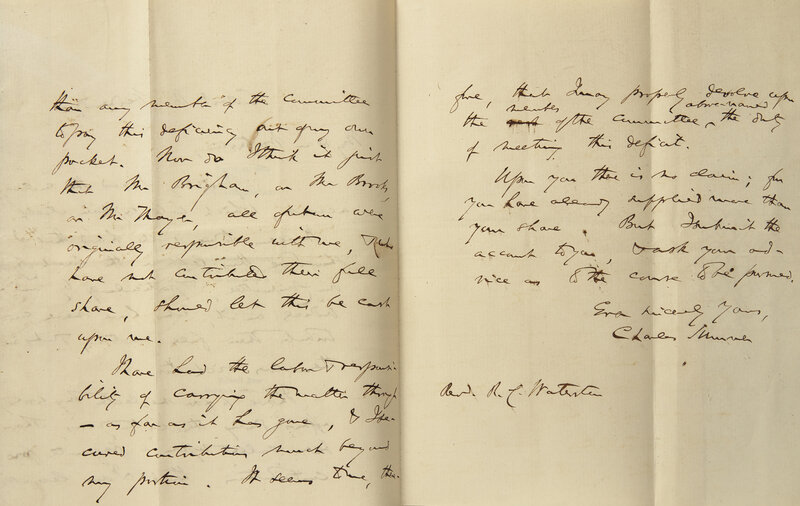 than any member of the Committee
to pay this deficiency out of my own
pocket. Nor do I think it just
that Mr Brigham, or Mr Brooks,
or Mr Thayer, all of whom were
originally responsible with me, & who
have not contributed their full
share, should let this be cast
upon me.
I have had the labor & responsi-
bility of carrying the matter through
— as far as it has gone, & I se-
cured contributions much beyond
my portion. It seems to me, there-
fore, that I may properly devolve upon
the members of the Committee, above-named the duty
of meeting this deficit.
Upon you there is no claim; for
you have already supplied more than
your share. But I submit the
account to you, & ask your ad-
vice as to the course to be pursued.
Ever sincerely Yours,
Charles Sumner
Revd. R. C. Waterston